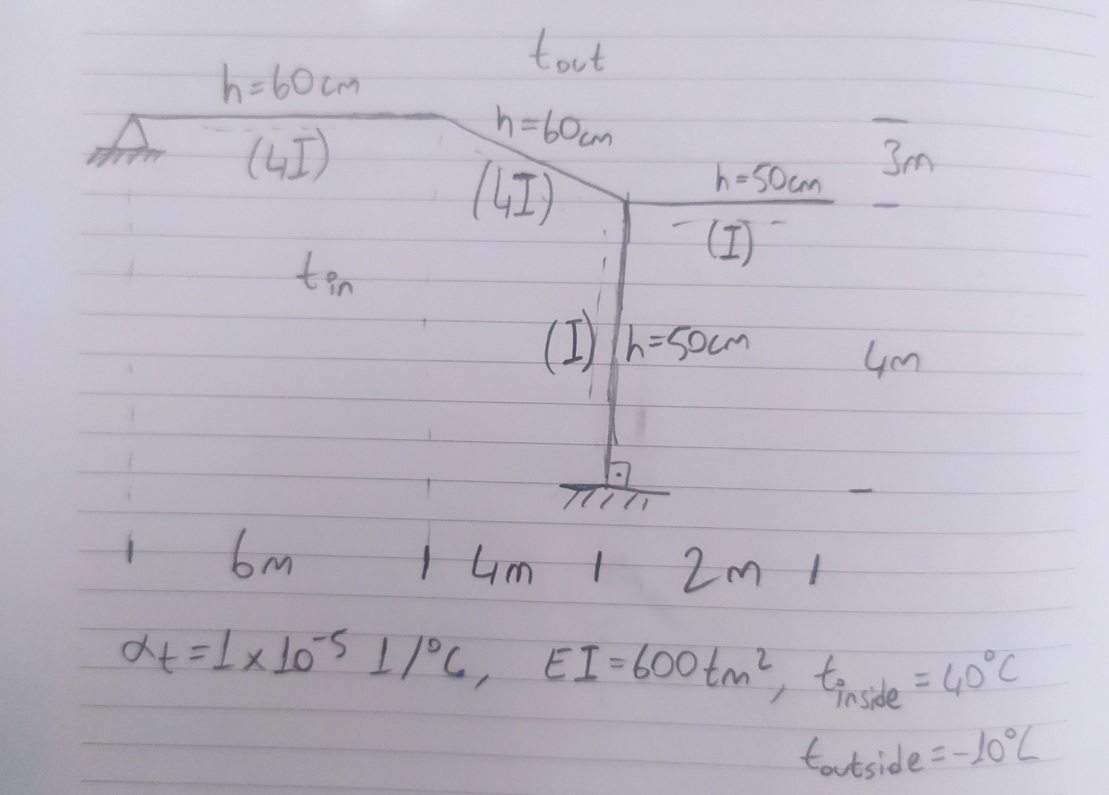 tout
h=60cm
h=60cm
(4I)
3m
(4I)
h=50cm
(I)
tin
(I)
h=50cm
4m
6m
4m
2m
αt=1x10⁻⁵ 1/°C, EI=600tm², tinside=40°C
toutside=-10°C